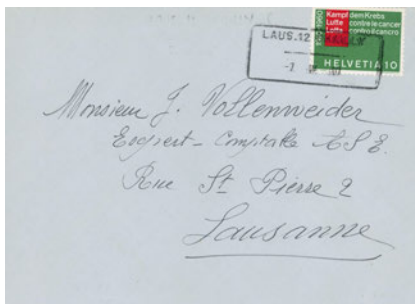 1910-1960
Kampf dem Krebs
Lutte contre le cancer
Lotta contro il cancro
HELVETIA 10
LAUS.12
Monsieur J. Vollenweider
Expert-Comptable A S E.
Rue St Pierre 2
Lausanne